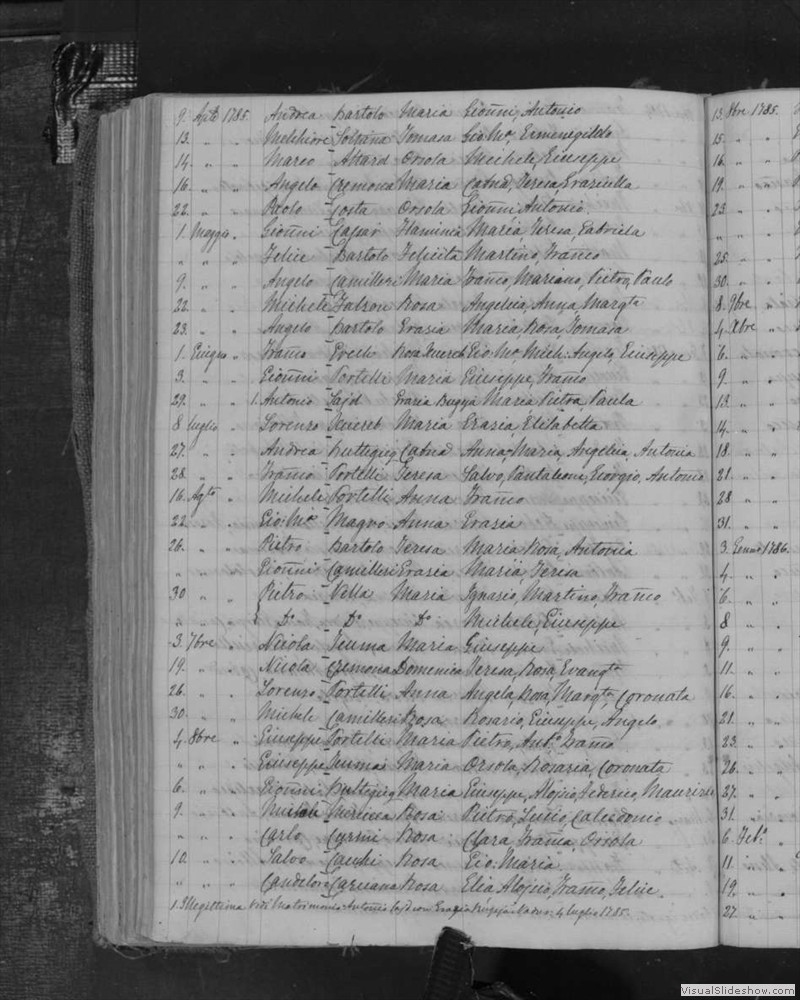 9. Aple 1785. Andrea Bartolo Maria Gionni, Antonio
13. " " Melchiore Soltana Tomasa Gio: Ma, Ermenegildo
14. " " Marco Attard Orsola Michele, Giuseppe
16. " " Angelo Cremona Maria Catna, Teresa, Graziulla
22. " " Paolo Costa Orsola Gionni, Antonio
1. Maggio " Gionni Caspar Flaminia Maria, Teresa, Gabriela
" " " Felice Bartolo Felicita Martino, Franco
9. " " Angelo Camilleri Maria Franco, Mariano, Pietro, Paulo
22. " " Michele Falzon Rosa Angelica, Anna, Margta
23. " " Angelo Bartolo Grazia Maria, Rosa, Tomasa
1. Giugno " Franco Grech Rosa Xuereb Gio: Ma, Mich: Angelo, Giuseppe
3. " " Gionni Portelli Maria Giuseppe, Franco
29. " " 1. Antonio Sajd Grazia Bugeja Maria Pietra, Paula
8 Luglio " Lorenzo Xuereb Maria Grazia, Elisabetta
27. " " Andrea Buttigieg Catna Anna, Maria, Angelica, Antonia
28. " " Franco Portelli Teresa Salvo, Pantaleone, Giorgio, Antonio
16. Agto " Michele Portelli Anna Franco
22. " " Gio: Ma Magro Anna Grazia
26. " " Pietro Bartolo Teresa Maria Rosa, Antonia
" " " Gionni Camilleri Grazia Maria, Teresa
30 " " Pietro Vella Maria Ignazio, Martino, Franco
" " " Do Do Do Michele, Giuseppe
3. 7bre " Nicola Xeuma Maria Giuseppe
19. " " Nicola Cremona Domenica Teresa, Rosa, Evangta
26. " " Lorenzo Portelli Anna Angela, Rosa, Margta, Coronata
30. " " Michele Camilleri Rosa Rosario, Giuseppe, Angelo
4. 8bre " Giuseppe Portelli Maria Pietro, Anto, Franco
" " " Giuseppe Xeuma Maria Orsola, Rosaria, Coronata
6. " " Gionni Buttigieg Maria Giuseppe, Aloisio, Federico, Maurizio
9. " " Michele Mercieca Rosa Pietro, Lucio, Calcedonio
" " " Carlo Curmi Rosa Clara, Franca, Orsola
10. " " Salvo Cauchi Rosa Gio: Maria
" " " Candeloro Caruana Rosa Elia, Aloisio, Franco, Felice
1. Illegittima Vedi Matrimonio Antonio Sajd con Grazia Bugeja 4 Luglio 1785.
13. 8bre 1785.
15. " "
16. " "
19. " "
23. " "
" " "
25. " "
30. " "
8. 9bre "
4. Xbre "
6. " "
9. " "
13. " "
14. " "
18. " "
21. " "
28 " "
31. " "
3. Genno 1786.
4. " "
6. " "
8 " "
9. " "
11. " "
16. " "
21. " "
23. " "
26. " "
27. " "
31. " "
6. Febo "
11. " "
19. " "
27. " "
VisualSlideshow.com